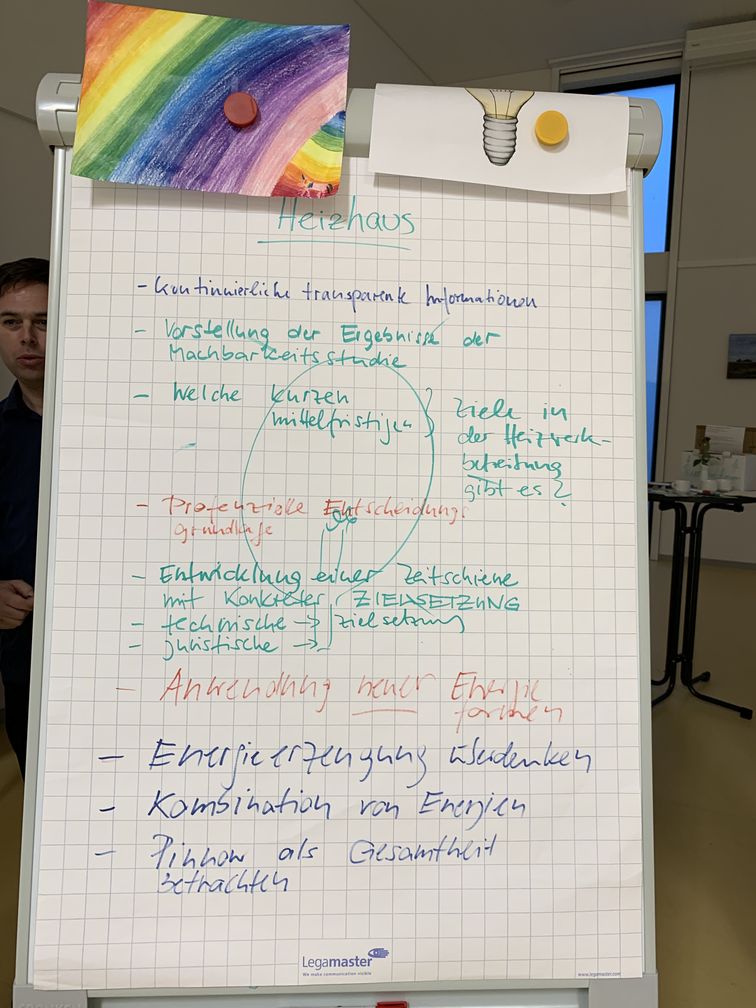 Heizhaus
- Kontinuierliche transparente Informationen
- Vorstellung der Ergebnisse der
Machbarkeitsstudie
- Welche kurzen
mittelfristigen
Ziele in
der Heizwerk-
betreibung
gibt es?
- Entscheidungs
grundlage
- Entwicklung einer Zeitschiene
mit konkreter ZIELSETZUNG
- technische → Zielsetzung
- juristische →
- Anwendung neuer Energie
formen
- Energieerzeugung überdenken
- Kombination von Energien
- Pinnow als Gesamtheit
betrachten
Legamaster
We make communication visible
www.legamaster.com